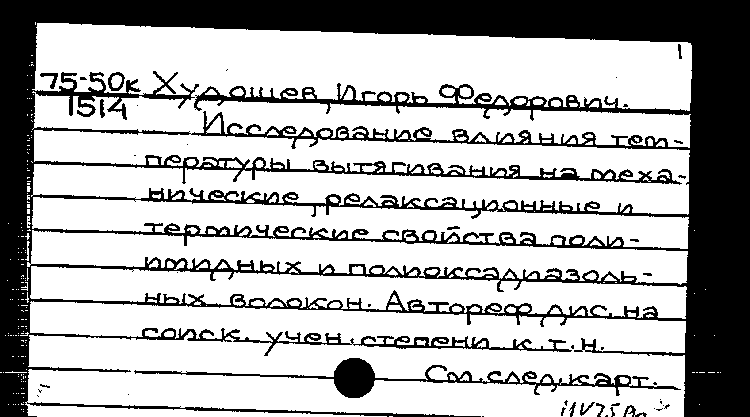 1
75-50к Худошев, Игорь Федорович.
1514
Исследование влияния тем-
пературы вытягивания на меха-
нические, релаксационные и
термические свойства поли-
имидных и полиоксадиазоль-
ных волокон. Автореф. дис. на
соиск. учен. степени к.т.н.
См. след. карт.